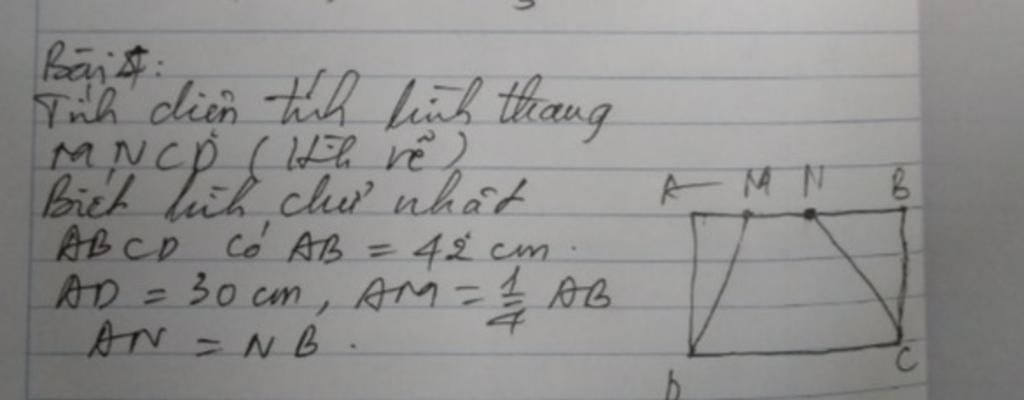 Bài 4:
Tính diện tích hình thang
MNCD (Hình vẽ)
Biết hình chữ nhật
ABCD có AB = 42 cm.
AD = 30 cm, AM = 1/4 AB
AN = NB.
A M N B
D C